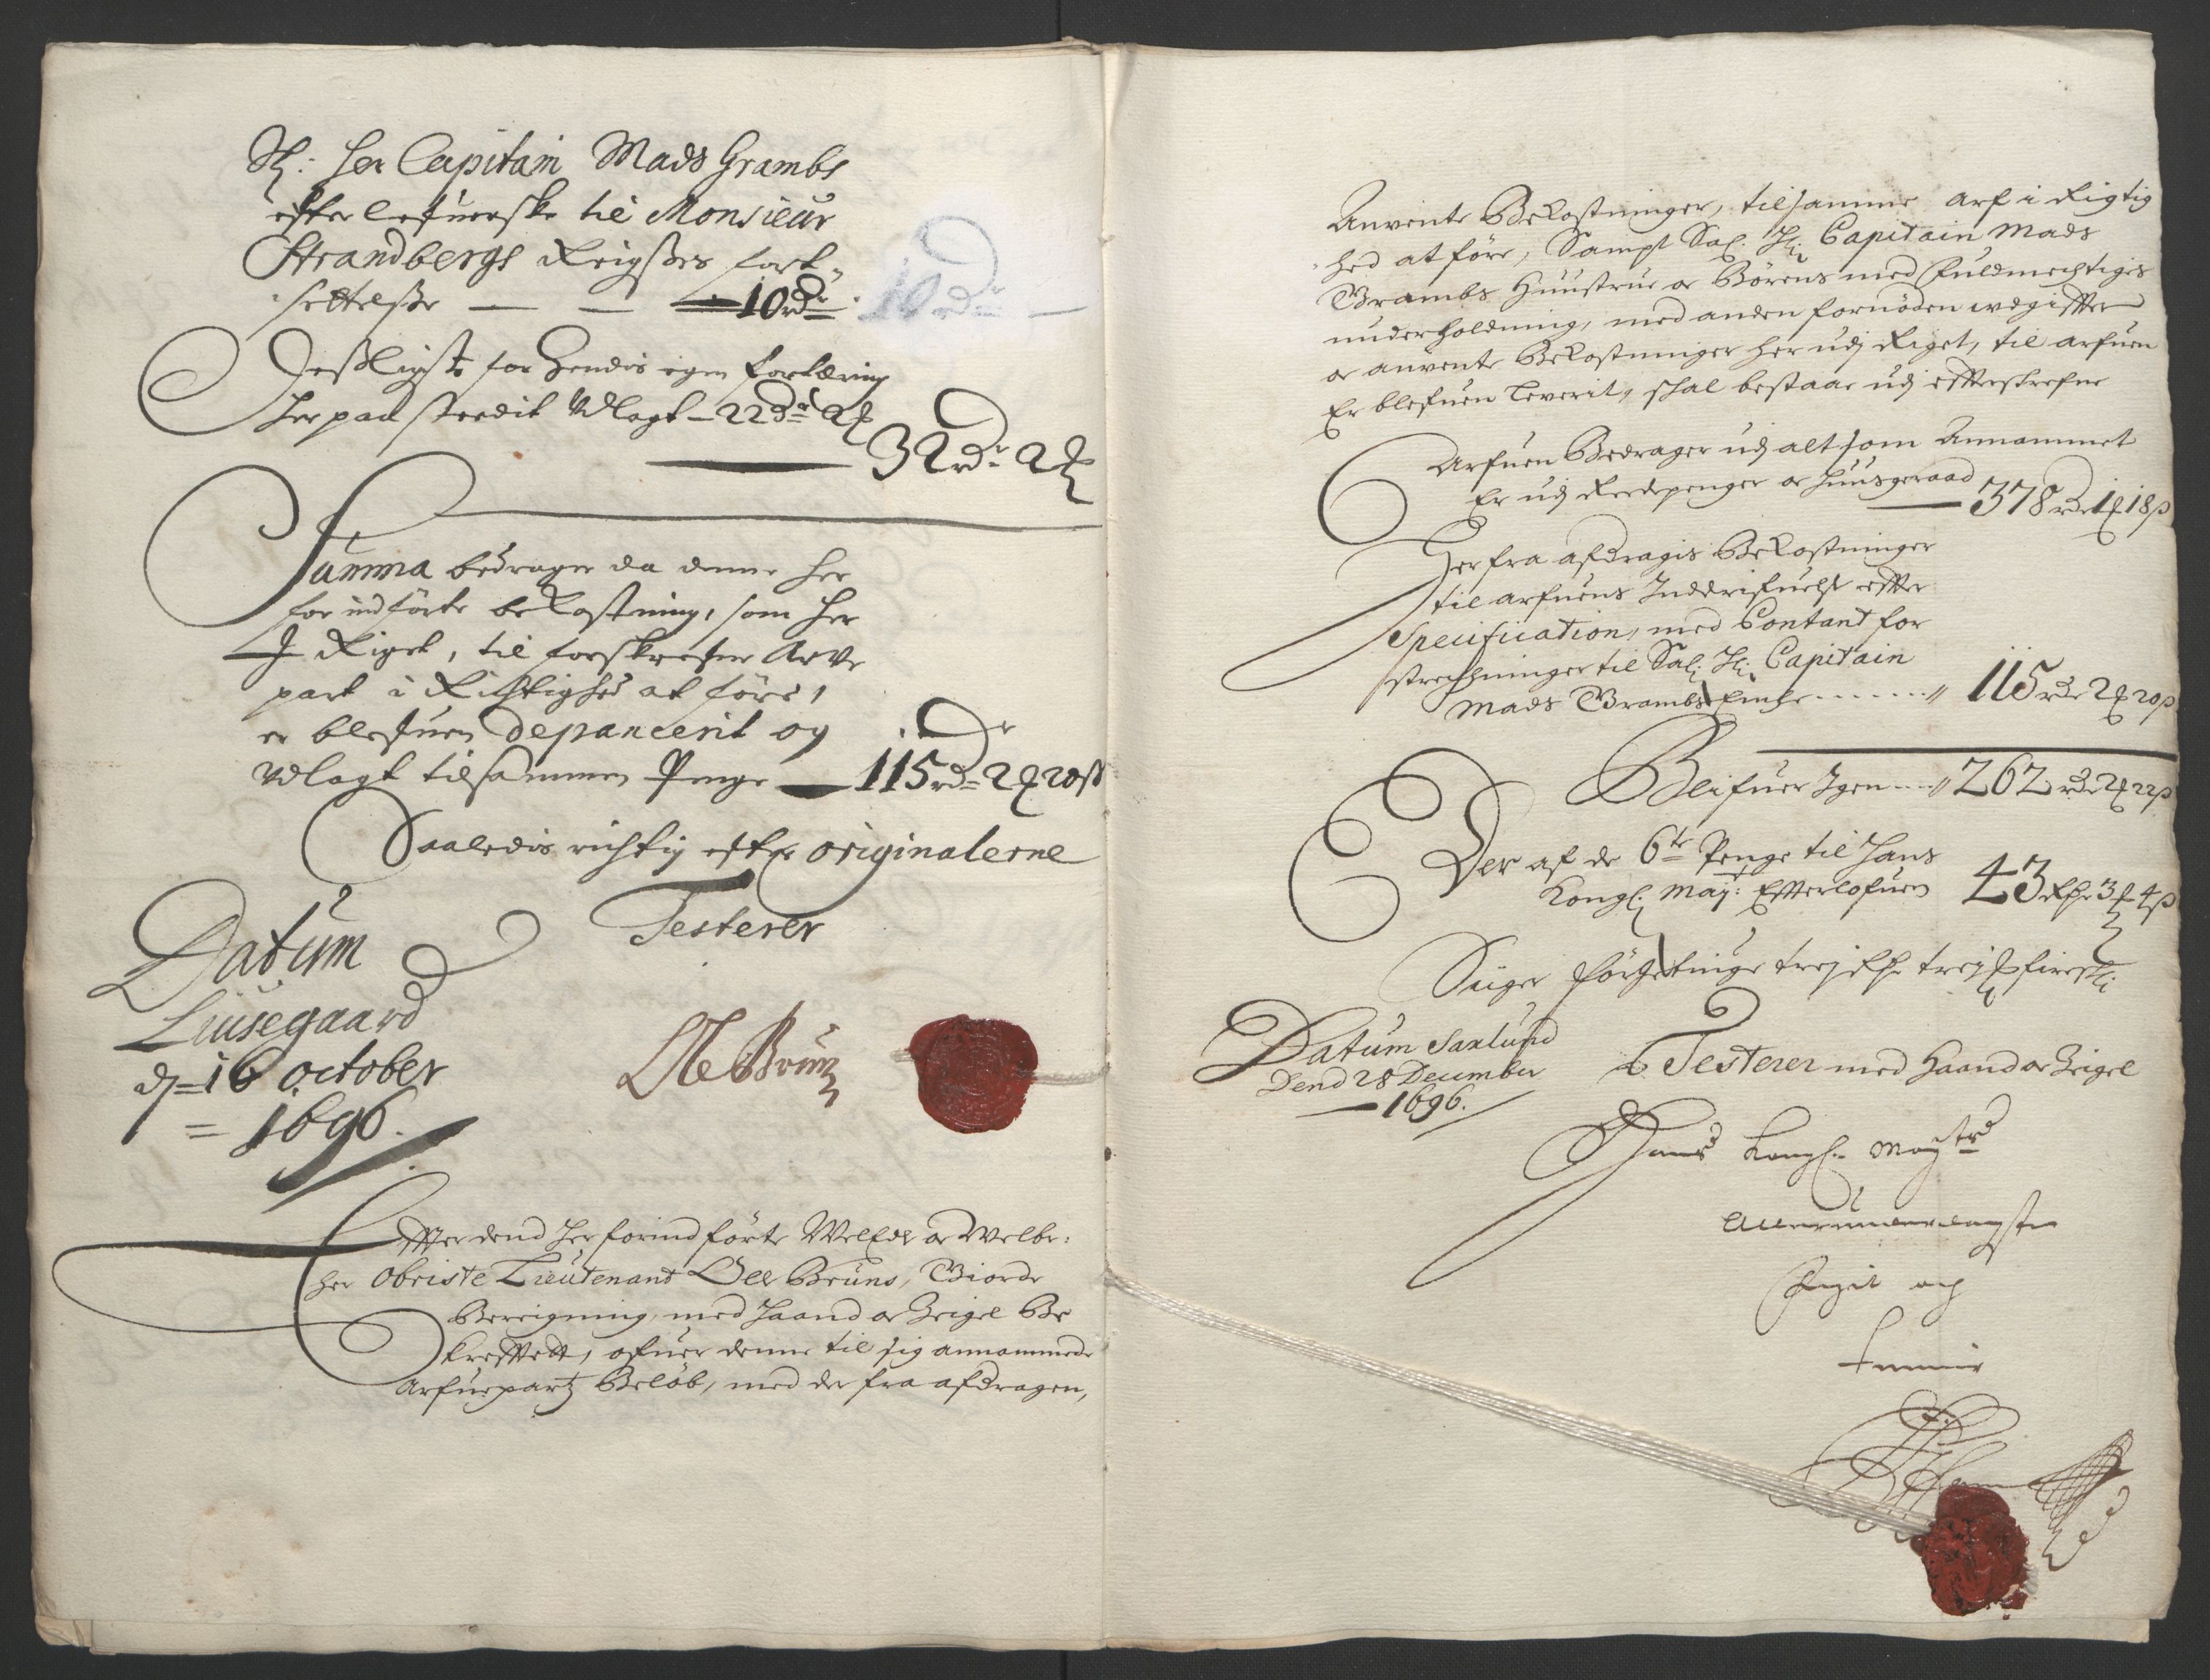 Sl: her Capitain Mads Grambs
efterlefuerske til Monsieur
Strandbergs Reigßes fort-
settelße — — 10 rdr
Desligeste for hendis egen fortæring
her paa stædit Udlagt – 22 dr 2 ℔
32 rdr 2 ℔
Summa bedrager da denne her
for indförte bekostning, som her
I Riget, til forskrefne Arve
part i Richtighed at före,
er blefuen depancerit og
Udlagt tilsammen Penge — 115 rd 2 ℔ 20 ß
Saaledis richtig efter originalerne
Testerer
Datum
Liusegaard
d= 16 October
= 1696.
Ole Brun
Effter dend her forindförte Welædle oc Welbr:
her Obriste Lieutenant Ole Bruns, Giorde
Beregning, med Haand oc Zeigel Be
krefftett, ofuer denne til sig annammede
Arfuepartz Belöb, med der fra afdragen,
Anvente Bekostninger, tilsamme Arf i Rigtig
hed at före, Sampt Sal: Hr: Capitain Mads
Grambs Huustrue oc Börens med fuldmechtiges
underholdning, med anden fornöden udgiffter
oc anvente Bekostninger her udj Riget, til arfuen
Er blefuen Leverit, schal bestaae udj effterskrefne
Arfuen Bedrager udj alt som Annammet
Er udj Redepenger oc huusgeraad — 378 rdr 1 ℔ 18 ß
Herfra afdragis Bekostninger
til arfuens Inddrifuelse effter
Specification, med Contant for
strechninger til Sal: Hr: Capitain
Mads Grambs Encke — 115 rdr 2 ℔ 20 ß
Blifuer Igen — 262 rdr 2 ℔ 22 ß
Der af de 6te Penge til Hans
Kongl: May: Effterlofuen 43 Rdr 3 ℔ 4 ß
Siiger förgetiuge trej Rdr trej ℔ fire ß:
Datum Saxlund
Dend 28 December
1696.
Testerer med Haand oc Zeigel
Hans Kongl: Maytz
Allerunderdanigste
Fogit och